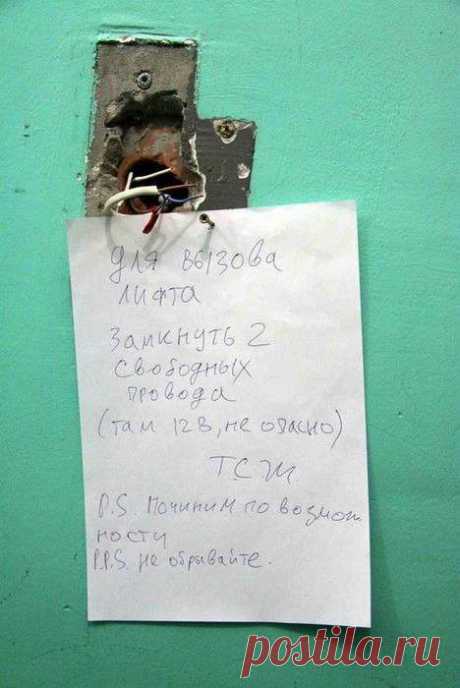 Для вызова
лифта
Замкнуть 2
свободных
провода
(там 12В, не опасно)
ТСЖ
P.S. Починим по возмож
ности
P.P.S. не обрывайте.
postila.ru